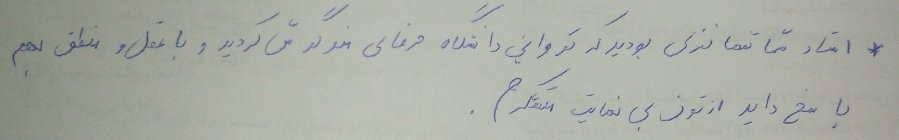 * استاد شما تنها فردی بودید که تو این دانشگاه حرفای منو گوش کردید و با عقل و منطق بهم
پاسخ دادید ازتون بی نهایت متشکرم.